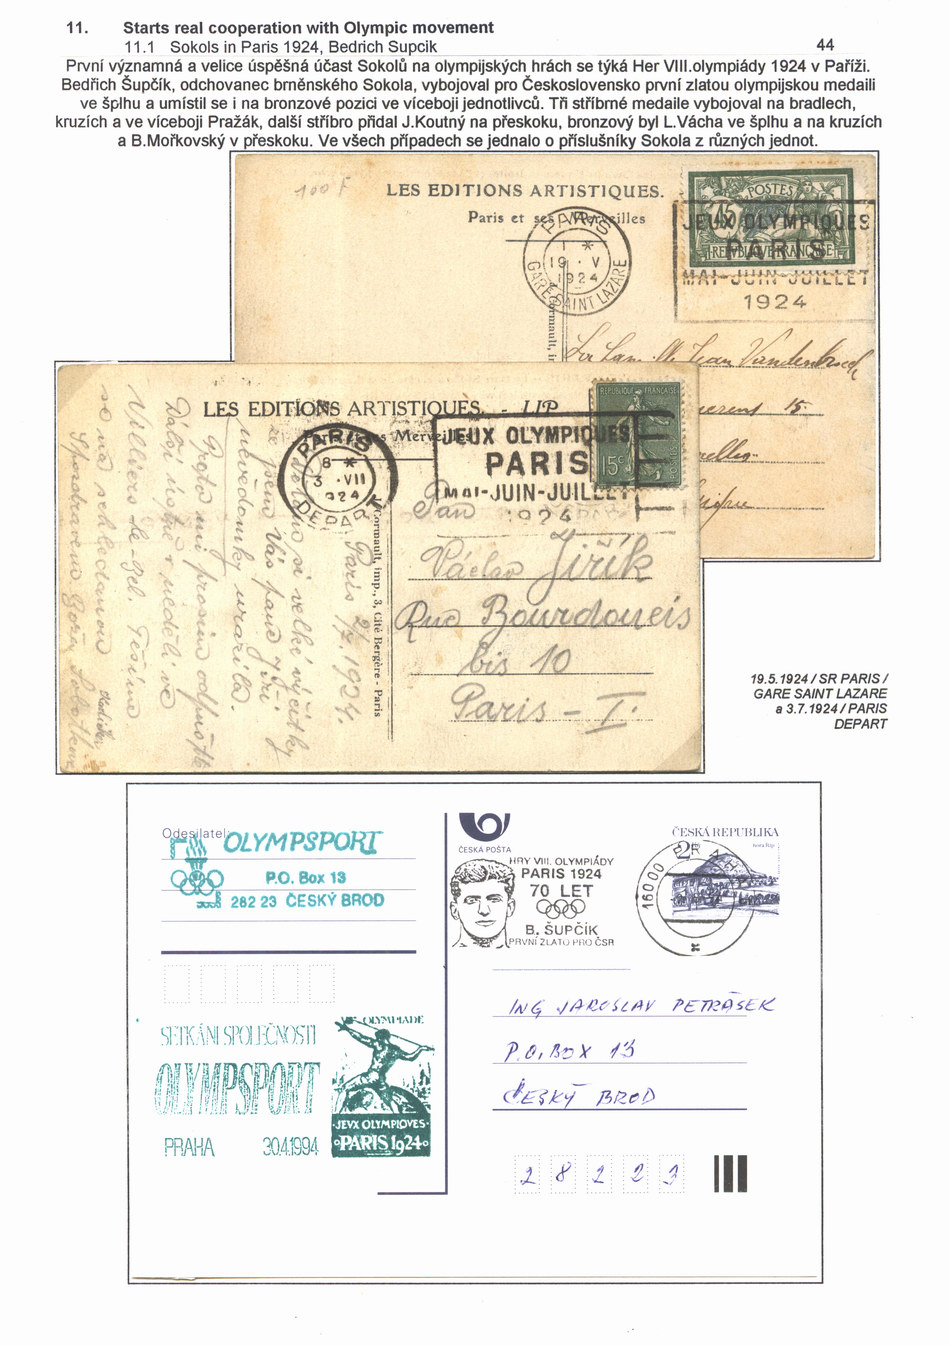 11. Starts real cooperation with Olympic movement
11.1 Sokols in Paris 1924, Bedrich Supcik
44
První významná a velice úspěšná účast Sokolů na olympijských hrách se týká Her VIII.olympiády 1924 v Paříži.
Bedřich Šupčík, odchovanec brněnského Sokola, vybojoval pro Československo první zlatou olympijskou medaili
ve šplhu a umístil se i na bronzové pozici ve víceboji jednotlivců. Tři stříbrné medaile vybojoval na bradlech,
kruzích a ve víceboji Pražák, další stříbro přidal J.Koutný na přeskoku, bronzový byl L.Vácha ve šplhu a na kruzích
a B.Mořkovský v přeskoku. Ve všech případech se jednalo o příslušníky Sokola z různých jednot.
100 F
LES EDITIONS ARTISTIQUES.
Paris et ses Merveilles
POSTES
45
REPUBLIQUE FRANÇAISE
JEUX OLYMPIQUES
PARIS
MAI-JUIN-JUILLET
1924
PARIS
1 *
19 · V
1924
GARE SAINT LAZARE
15
LES EDITIONS ARTISTIQUES. - LIP
Paris et ses Merveilles
REPUBLIQUE FRANÇAISE
15c
JEUX OLYMPIQUES
PARIS
MAI-JUIN-JUILLET
1924
PARIS
8 *
3 · VII
924
DEPART
Cormault, imp., 3, Cité Bergère - Paris
Pan
Václav Jiřík
Rue Bourdoneis
bis 10
Paris - I.
Paris 2/7. 1924.
si velké výčitky
že jsem Vás pane Jiří
nevědomky urazila.
Proto mi prosím odpusťte
Další v neděli ve
Villiers-le-gel. Těšíme
se na shledanou
19.5.1924 / SR PARIS /
GARE SAINT LAZARE
a 3.7.1924 / PARIS
DEPART
Odesílatel:
OLYMPSPORT
P.O. Box 13
282 23 ČESKÝ BROD
ČESKÁ POŠTA
HRY VIII. OLYMPIÁDY
PARIS 1924
70 LET
B. ŠUPČÍK
PRVNÍ ZLATO PRO ČSR
ČESKÁ REPUBLIKA
2
160 00 PRAHA
SETKÁNÍ SPOLEČNOSTI
OLYMPSPORT
PRAHA 30.4.1994
VIIIe OLYMPIADE
JEVX OLYMPIQVES
PARIS 1924
ING JAROSLAV PETRÁSEK
P.O. BOX 13
ČESKÝ BROD
2 8 2 2 3